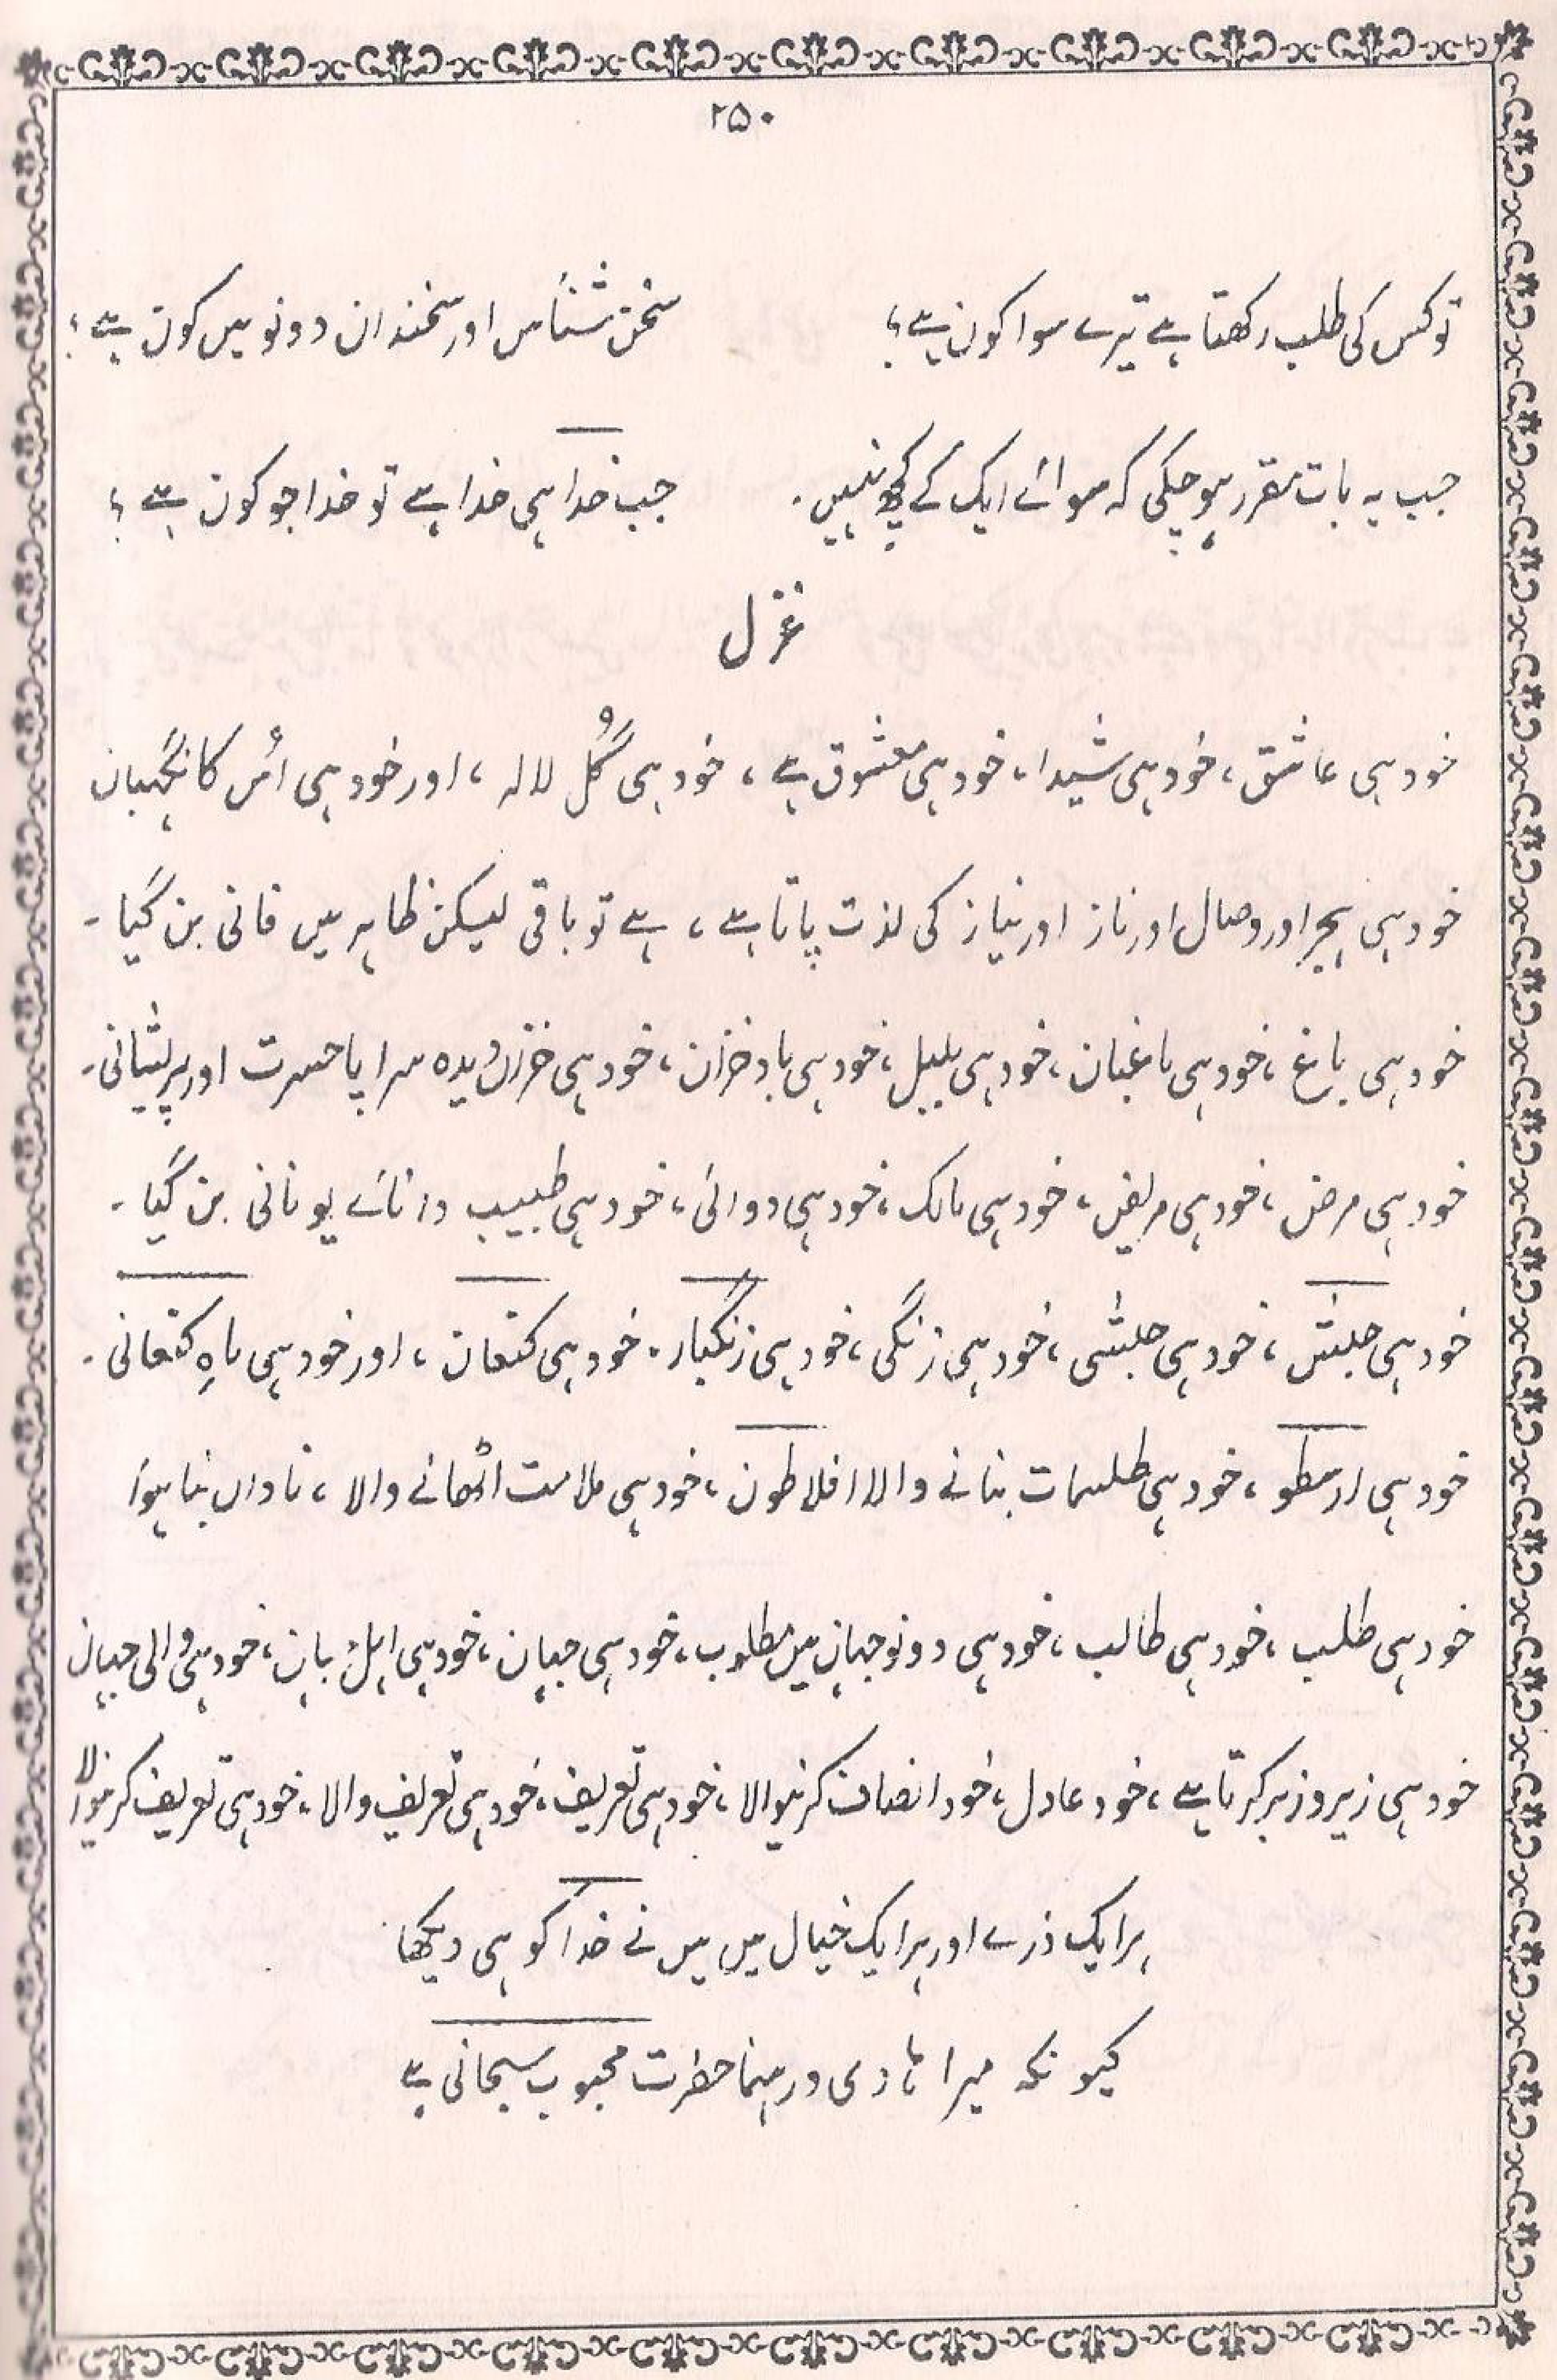 ۲۵۰
تو کس کی طلب رکھتا ہے تیرے سوا کون ہے؟ سخن شناس اور سخندان دونو میں کون ہے؟
جب یہ بات مقرر ہو چکی کہ سوائے ایک کے کچھ نہیں۔ جب خدا ہی خدا ہے تو خدا جو کون ہے؟
غزل
خود ہی عاشق، خود ہی شیدا، خود ہی معشوق ہے، خود ہی گُل لالہ، اور خود ہی اُس کا نگہبان
خود ہی ہجر اور وصال اور ناز اور نیاز کی لذت پاتا ہے، ہے تو باقی لیکن ظاہر میں فانی بن گیا۔
خود ہی باغ، خود ہی باغبان، خود ہی بلبل، خود ہی باد خزان، خود ہی خزاں دیدہ سراپا حسرت اور پریشانی۔
خود ہی مرض، خود ہی مریض، خود ہی مالک، خود ہی دوائی، خود ہی طبیب دانائے یونانی بن گیا۔
خود ہی حبش، خود ہی حبشی، خود ہی زنگی، خود ہی زنگبار۔ خود ہی کنعان، اور خود ہی ماہِ کنعانی۔
خود ہی ارسطو، خود ہی طلسمات بنانے والا افلاطون، خود ہی ملامت اٹھانے والا، ناداں بنا ہوا
خود ہی طلب، خود ہی طالب، خود ہی دونو جہان میں مطلوب، خود ہی جہان، خود ہی اہل جہان، خود ہی والی جہان
خود ہی زیر و زبر کرتا ہے، خود عادل، خود انصاف کرنیوالا، خود ہی تعریف، خود ہی تعریف والا، خود ہی تعریف کرنیوالا
ہر ایک ذرے اور ہر ایک خیال میں میں نے خدا کو ہی دیکھا
کیونکہ میرا ہادی و رہنما حضرت محبوب سبحانی ہے